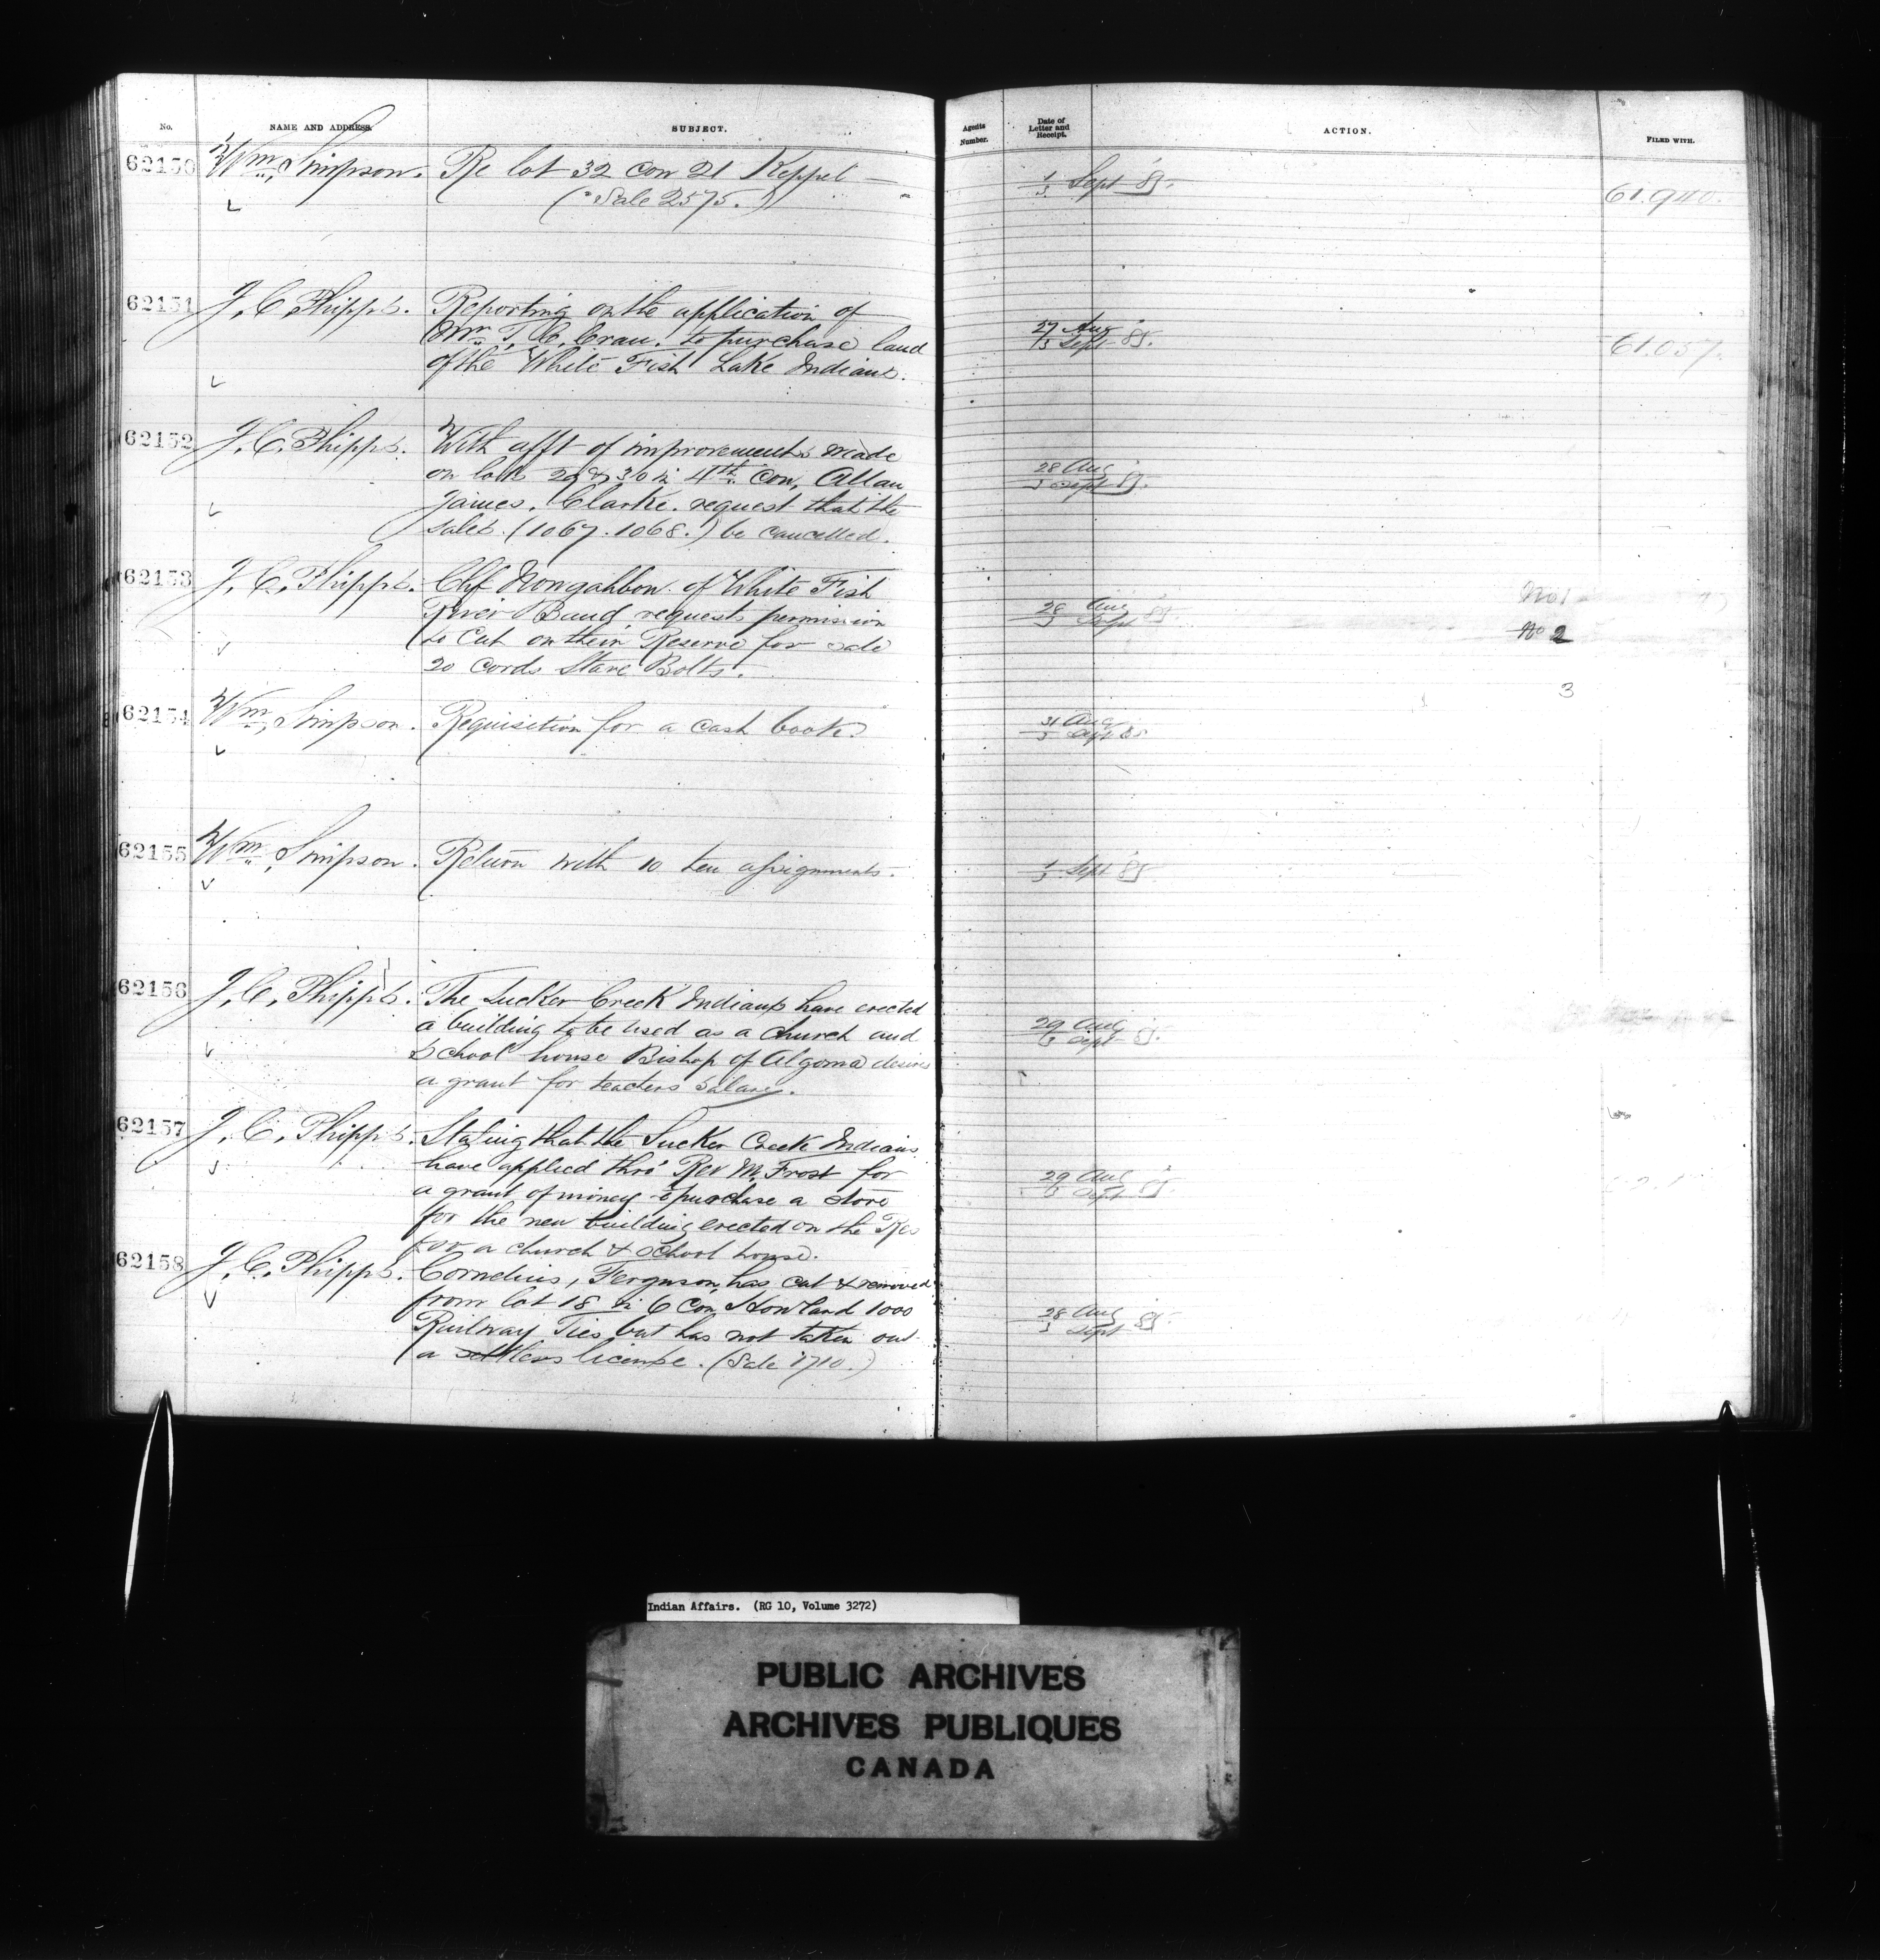 No. NAME AND ADDRESS. SUBJECT. Agents Number. Date of Letter and Receipt. ACTION. FILED WITH.
62150 Wm. Simpson. Re lot 32 con 21 Keppel 1/3 Sept 85. 61.940.
(Sale 2575.)
62151 J. C. Phipps. Reporting on the application of 27 Aug
Wm T. C. to purchase land 3 Sept 85. 61.057.
of the White Fish Lake Indians.
62152 J. C. Phipps. With afft of improvements made
on lots 29 & 30 in 4th con, Allan 28 Aug
James. Clarke. request that the 3 Sept 85.
Sales. (1067.1068.) be cancelled.
62153 J. C. Phipps. Chf Nongahbon. of White Fish No 1
River Band, requests permission 28 Aug
to Cut on their Reserve for sale 3 Sept 85 No 2
20 cords Stave Bolts.
3
62154 Wm. Simpson. Requisition for a cash book. 31 Aug
3 Sept 85
62155 Wm. Simpson. Return with 10 ten assignments. 1/3 Sept 85
62156 J. C. Phipps. The Sucker Creek Indians have erected
a building to be used as a church and 29 Aug
School house Bishop of Algoma desires Sept 85.
a grant for teachers Salary.
62157 J. C. Phipps. Stating that the Sucker Creek Indians
have applied thro' Rev M. Frost for 29 Aug
a grant of money to purchase a stove Sept 85
for the new building erected on the Res
for a church & School house.
62158 J. C. Phipps. Cornelius, Ferguson, has cut & removed
from lot 18 in 6 Con, Howland 1000 28 Aug
Railway Ties but has not taken out 3 Sept 85
a settlers license. (Sale 1710.)
Indian Affairs. (RG 10, Volume 3272)
PUBLIC ARCHIVES
ARCHIVES PUBLIQUES
CANADA